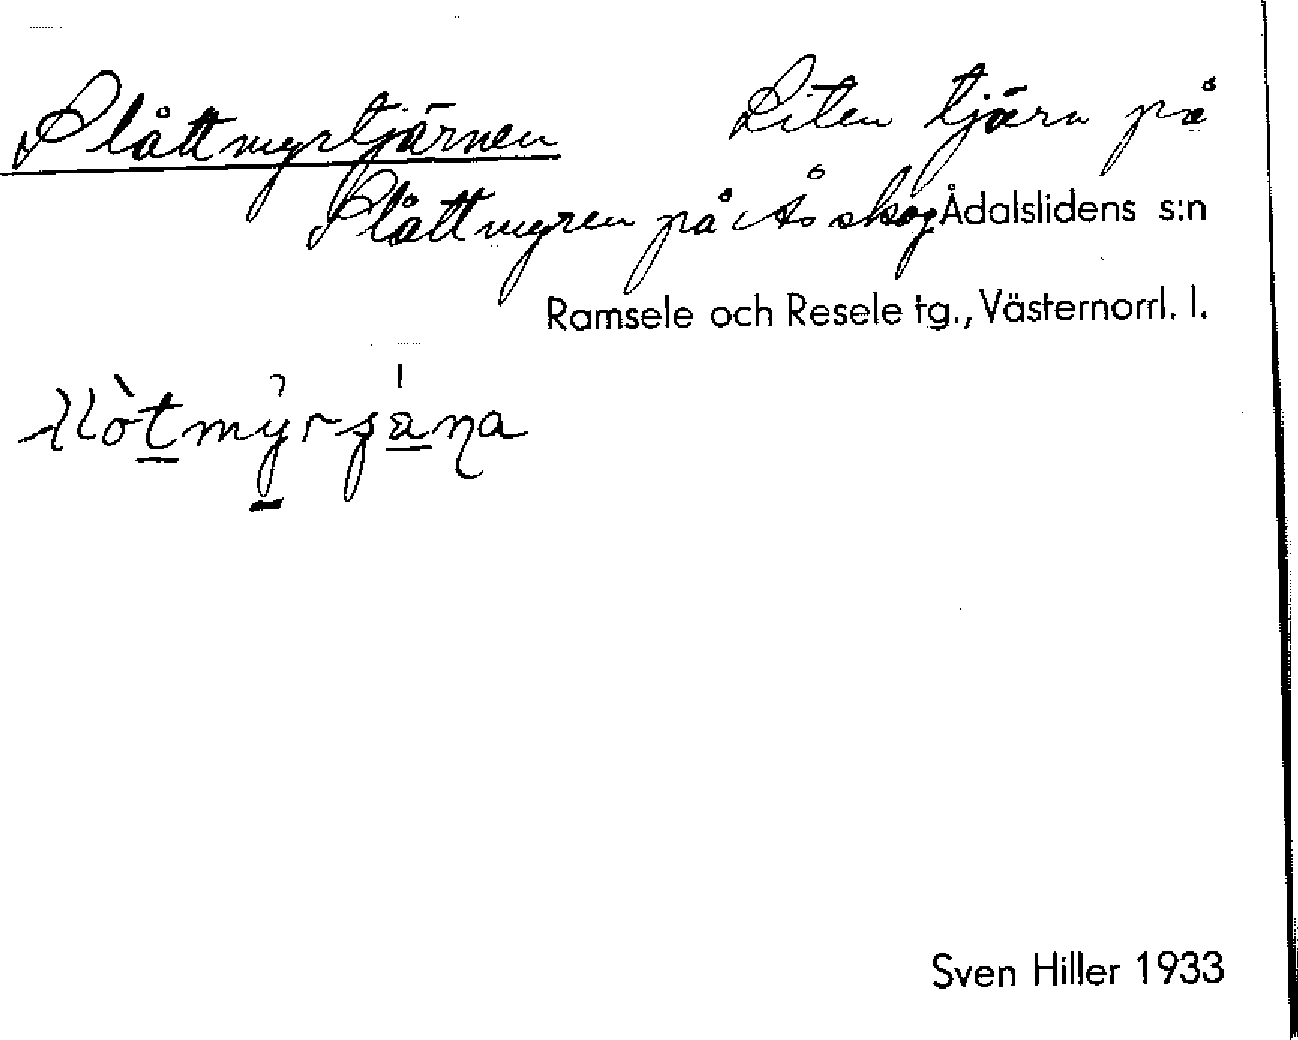 Slåttmyrtjärnen Liten tjärn på
Slåttmyren på Ås skog Ådalslidens s:n
Ramsele och Resele tg., Västernorrl. l.
Sven Hiller 1933